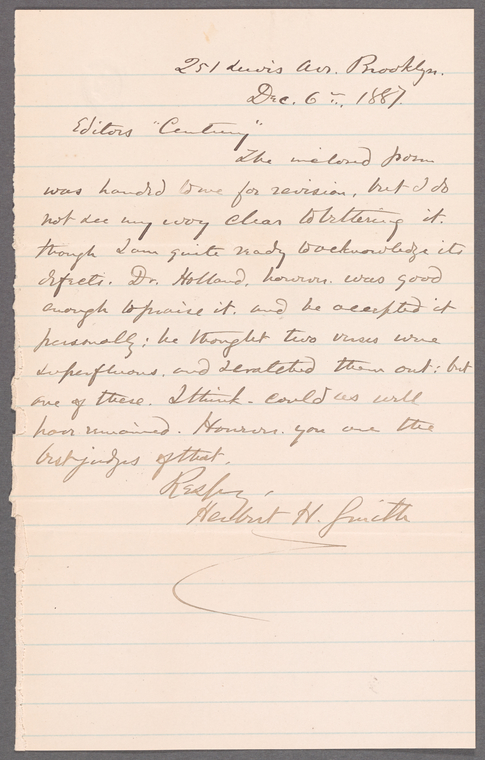 251 Lewis Av. Brooklyn.
Dec. 6th, 1881.
Editors "Century"
The inclosed poem
was handed to me for revision, but I do
not see my way clear to bettering it,
though I am quite ready to acknowledge its
defects. Dr. Holland, however, was good
enough to praise it, and he accepted it
personally; he thought two verses were
superfluous, and scratched them out; but
one of these, I think, could as well
have remained. However, you are the
best judges of that.
Respy,
Herbert H. Smith